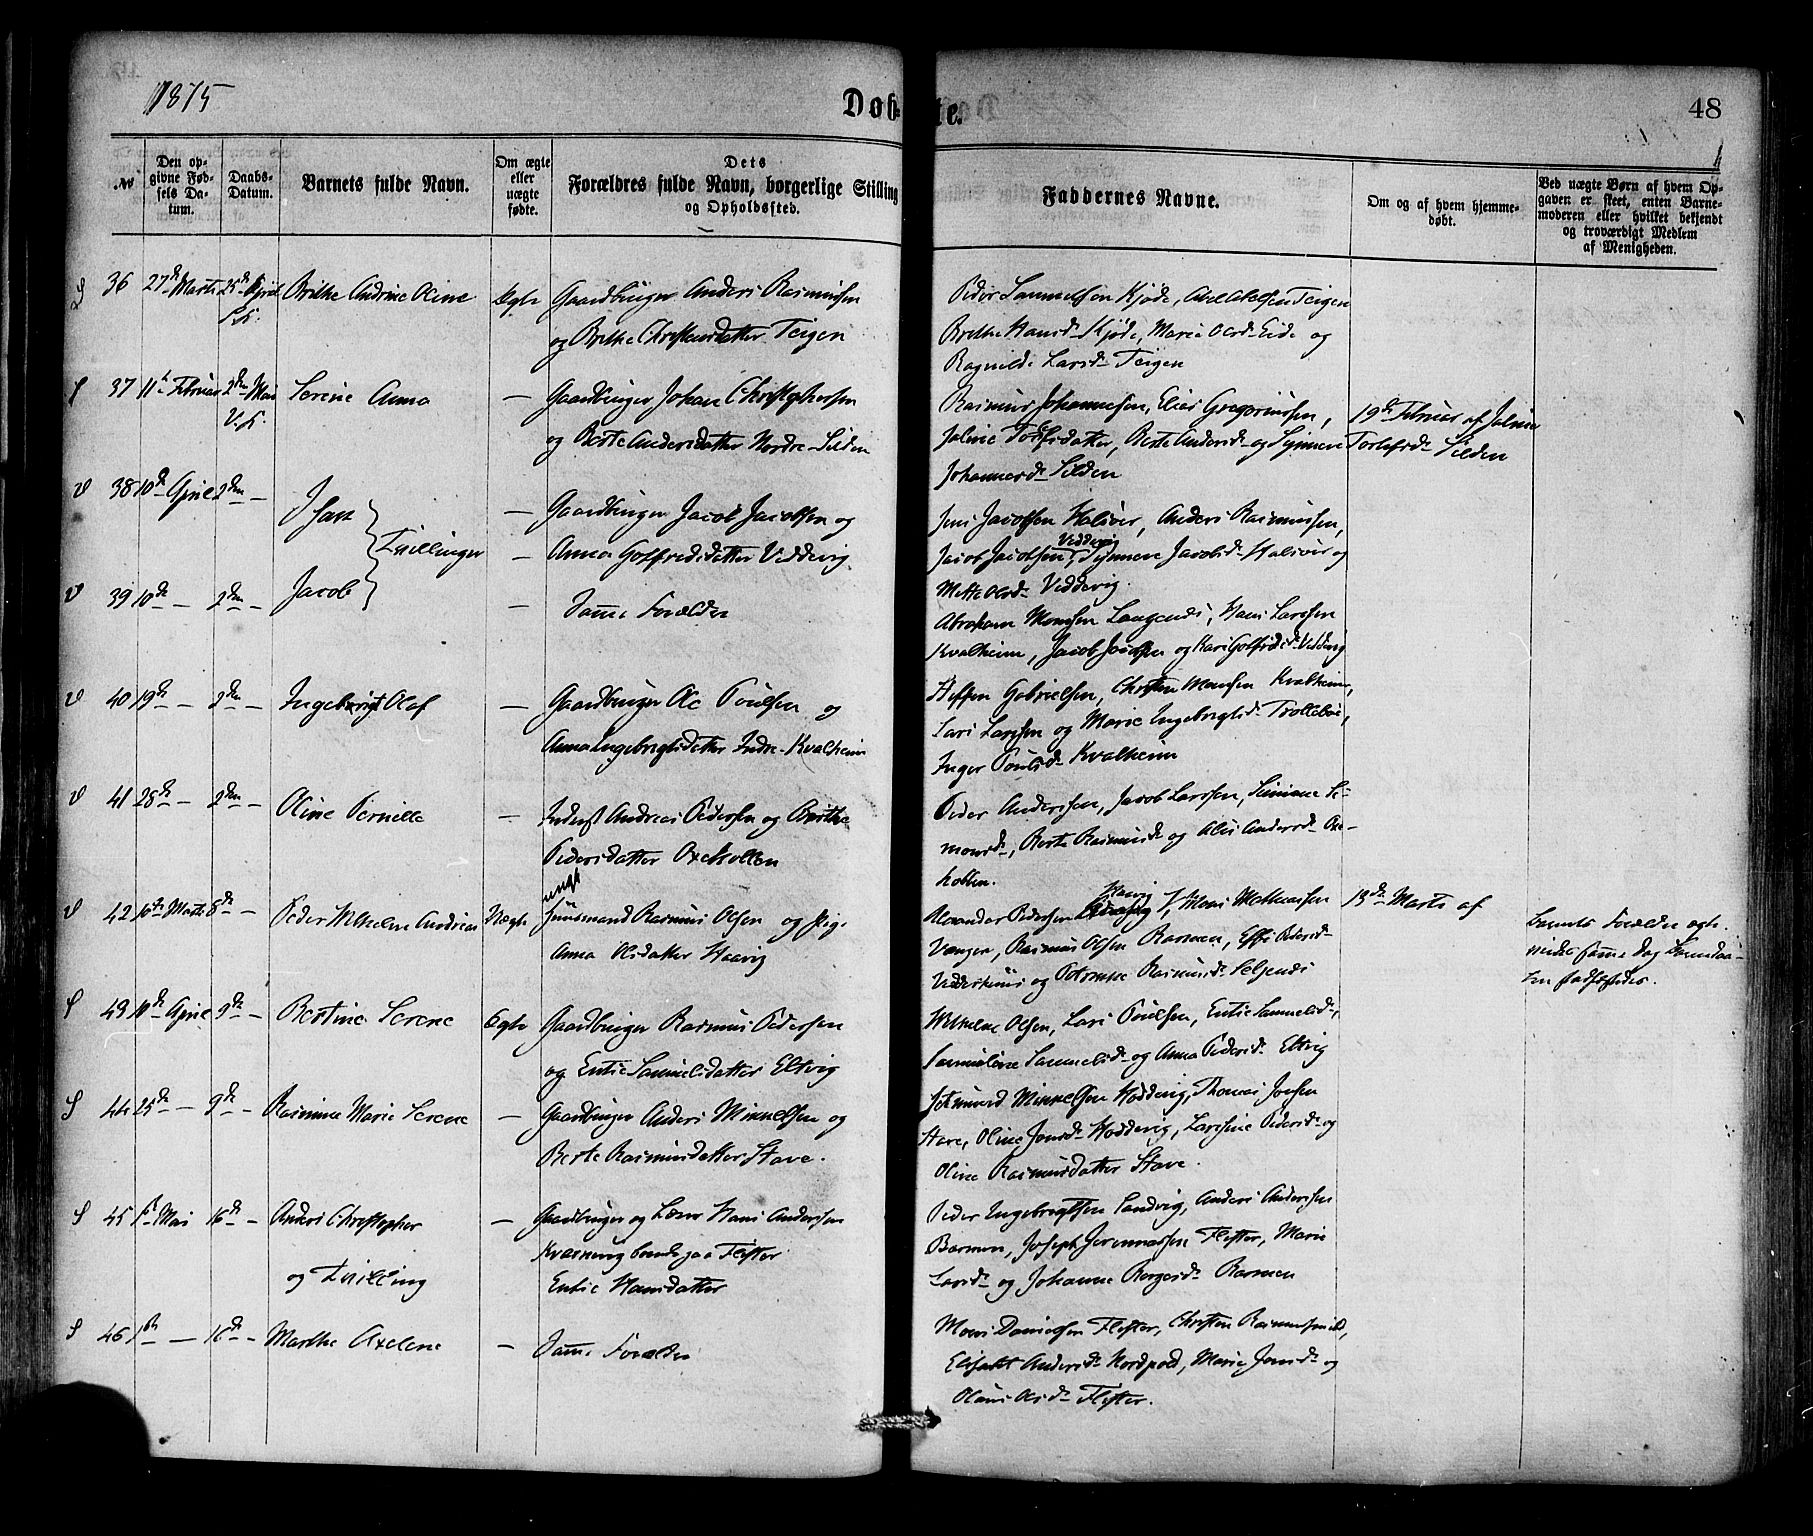 1875
Døb-
te.
48
№
Den op-
givne Fød-
sels Da-
tum.
Daabs-
Datum.
Barnets fulde Navn.
Om ægte
eller
uægte
fødte.
Dets
Forældres fulde Navn, borgerlige Stilling
og Opholdssted.
Faddernes Navne.
Om og af hvem hjemme-
døbt.
Ved uægte Børn af hvem Op-
gaven er skeet, enten Barne-
moderen eller hvilket bekjendt
og troværdigt Medlem
af Menigheden.
S 36 27de Marts 25de April Brithe Andrine Oline Ægte Gaardbruger Anders Rasmussen
S.K.
og Brithe Christensdatter Teigen
Peder Samuelsen Kjøde, Abel Abelsen Teigen
Brethe Hansd. Kjøde, Marie Olsd. Eide og
Ragnilde Larsd. Teigen
S 37 11te Februar 2den Mai Serine Anna — Gaardbruger Johan Christophersen
V.K.
og Berte Andersdatter Nordre-Silden
Rasmus Johannesen, Elias Gregoriussen,
Jaline Tollefsdatter, Berte Andersd. og Synneve
Johannesd. Silden
19de Februar af Jaline
Tollefsd. Silden
V 38 10de April 2den — Isak — Gaardbruger Jacob Jacobsen og
Tvillinger — Anna Golfredsdatter Veddevig
Jens Jacobsen Halsvor, Anders Rasmussen,
Jacob Jacobsen Veddevig, Synneve Jacobsd. Halsvor og
Mette Olsd. Veddevig.
V 39 10de — 2den — Jacob — Samme Forældre
Abraham Monssen Langenes, Hans Larssen
Kvalheim, Jacob Jacobsen og Kari Golfredsd. Veddevig
V 40 19de — 2den — Ingebrigt Olaf — Gaardbruger Ole Poulsen og
Anna Ingebrigtsdatter Indre-Kvalheim
Steffen Gabrielsen, Christen Monsen Kvalheim,
Lars Larssen og Marie Ingebrigtsd. Trollebø,
Inger Poulsd. Kvalheim
V 41 28de — 2den — Oline Pernille — Inderst Andreas Pedersen og Berthe
Pedersdatter Oxehollen
Peder Anderssen, Jacob Larssen, Simime Si-
monsd., Berte Rasmusd. og Alis Andersd. Oxe-
hollen.
V 42 10de Marts 8de — Peder Wilhelm Andreas Uægte ungk Huusmand Rasmus Olsen og Pig.
Anna Olsdatter Haavig
Alexander Pedersen Haavig, Mons Mathiassen
Vangen, Rasmus Olsen Barmen, Effi Pedersd.
Vedeshuus og Petrikke Rasmusd. Seljenes
13de Marts af
Barnets Forældre ægte-
viedes samme Dag Barnedaa-
ben stadfæstedes.
S 43 10de April 9de — Bertine Serene Ægte Gaardbruger Rasmus Pedersen
og Entie Samuelsdatter Eltvig
Wilhelm Olsen, Lars Poulsen, Entie Samuelsd.,
Samueline Samuelsd. og Anna Pedersd. Eltvig
S 44 25de — 9de — Rasmine Marie Serene — Gaardbruger Anders Mikkelsen og
Berte Rasmusdatter Stave.
Sakmund Mikkelsen Hoddevig, Thomas Jonsen
Stave, Oline Jonsd. Hoddevig, Larssine Pedersd. og
Oline Rasmusdatter Stave.
S 45 1ste Mai 16de — Anders Christopher — Gaardbruger og Lærer Hans Anderssen
og Tvilling
Kvarneng boende paa Flister
Entie Hansdatter
Peder Ingebrigtsen Sandvig, Anders Anderssen
Barmen, Joseph Jeremiassen Flister, Marie
Larsd. og Johanne Borgesd. Barmen
S 46 1ste — 16de — Marthe Axelene — Samme Forældre
Mons Danielsen Flister, Christen Rasmussen
Elisabet Andersd. Nordpold, Marie Jonsd. og
Olaus Olsd. Flister.